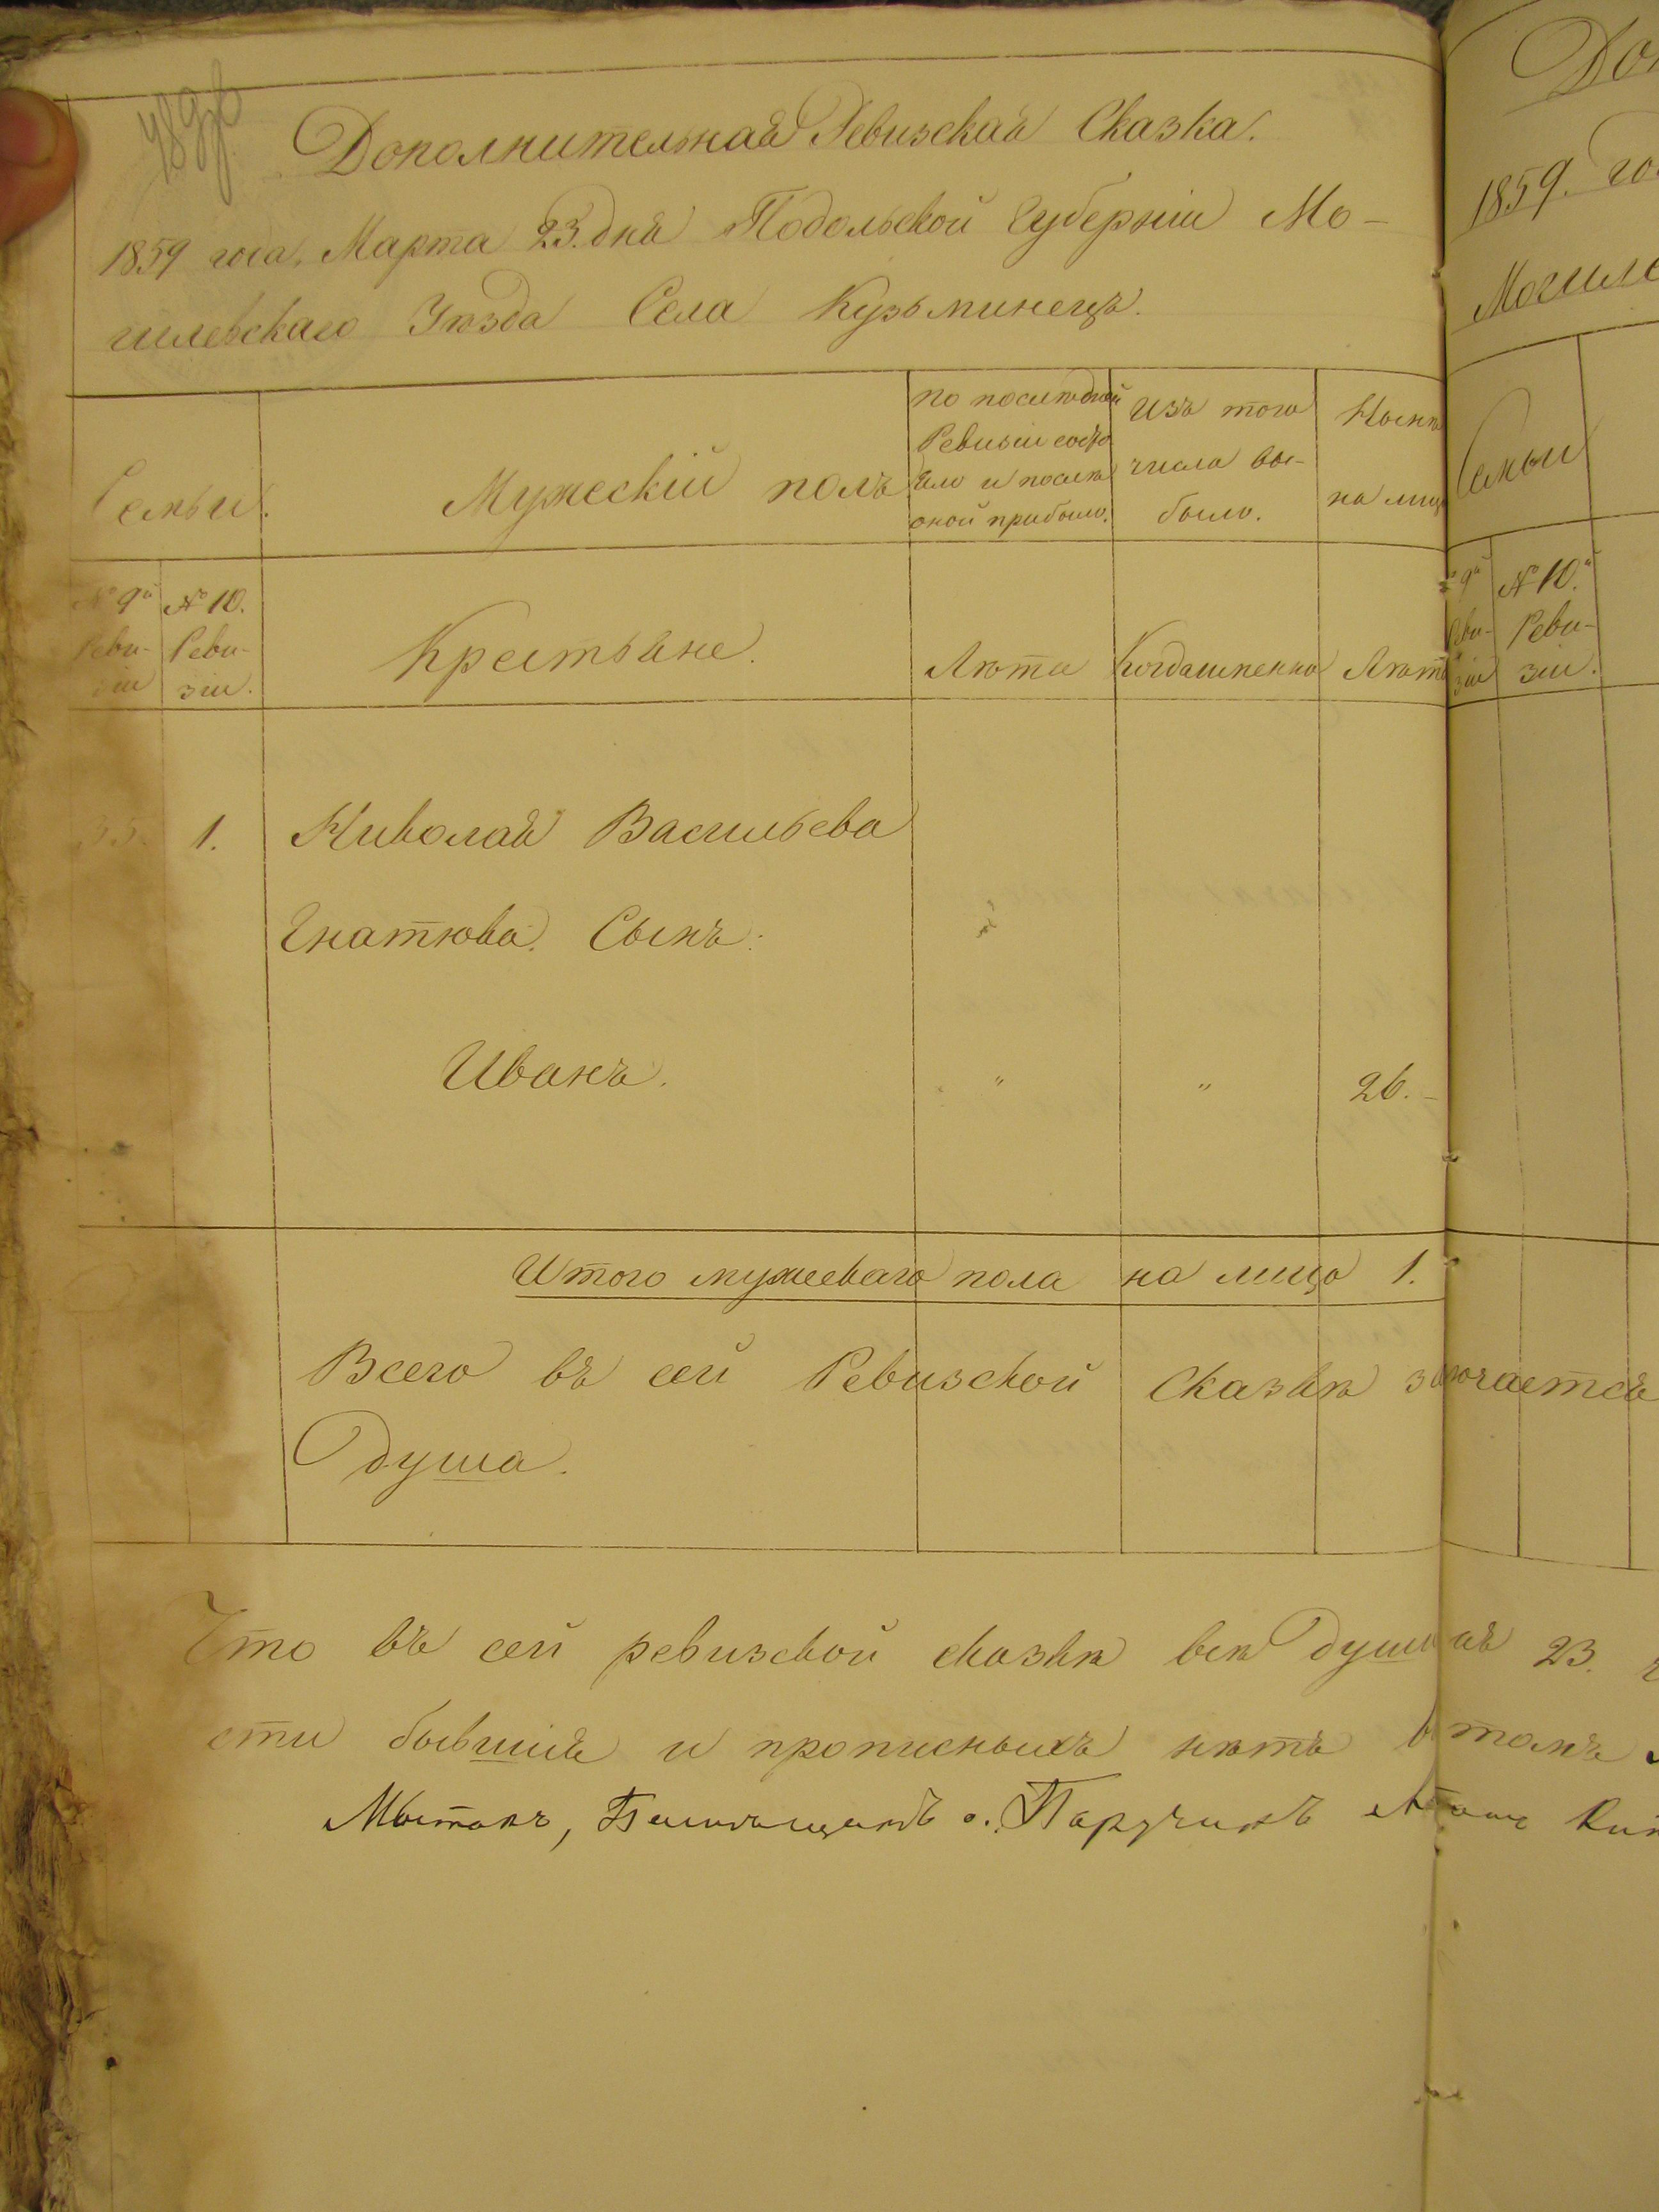 Дополнительная Ревизская Сказка.
1859 года, Марта 23. дня Подольской Губерніи Мо-
гилевскаго Уѣзда Села Кузьминецъ.
Семьи.
Мужескій полъ
по послѣдней
Ревизіи состо
яло и послѣ
оной прибыло.
Изъ того
числа вы-
было.
Нынѣ
на лицо
№ 9й
Реви-
зіи
№ 10.
Реви-
зіи.
Крестьяне.
Лѣта
Когда именно
Лѣта
35. 1. Николая Васильева
Гнатюка. Сынъ:
Иванъ. " " 26.-
Итого мужескаго пола на лицо 1.
Всего въ сей Ревизской Сказкѣ
душа.
Что въ сей ревизской сказкѣ всѣ души 23.
сти бывшія и прописныхъ нѣтъ томъ
Поручикъ
До
1859. го
Могиле
Семьи
№ 10.й
Реви-
зіи.